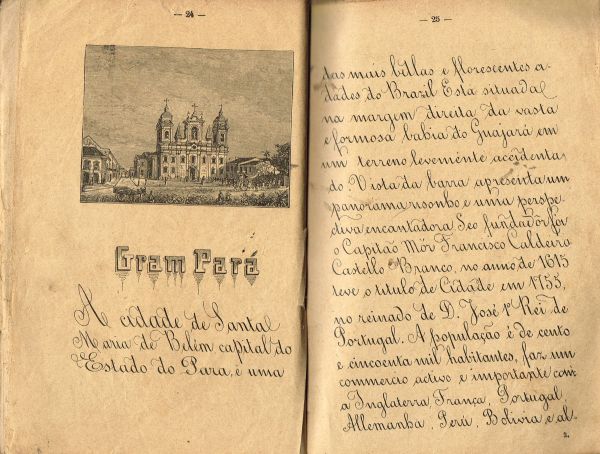 — 24 —
Gram Pará
A cidade de Santa
Maria de Belém capital do
Estado do Pará, é uma
— 25 —
das mais bellas e florescentes ci-
dades do Brazil Está situada
na margem direita da vasta
e formosa bahia do Guajará em
um terreno levemente accidenta
do Vista da barra apresenta um
panorama risonho e uma perspe
ctiva encantadora Seo fundador foi
o Capitaõ Mór Francisco Caldeira
Castello Branco, no anno de 1615
teve o titulo de Cidade em 1755,
no reinado de D. José 1º Rei de
Portugal. A população é de cento
e cincoenta mil habitantes, faz um
commercio activo e importante com
a Inglaterra, França, Portugal,
Allemanha, Perú, Bolivia e al-
2.